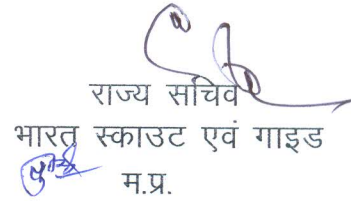 राज्य सचिव
भारत स्काउट एवं गाइड
म.प्र.